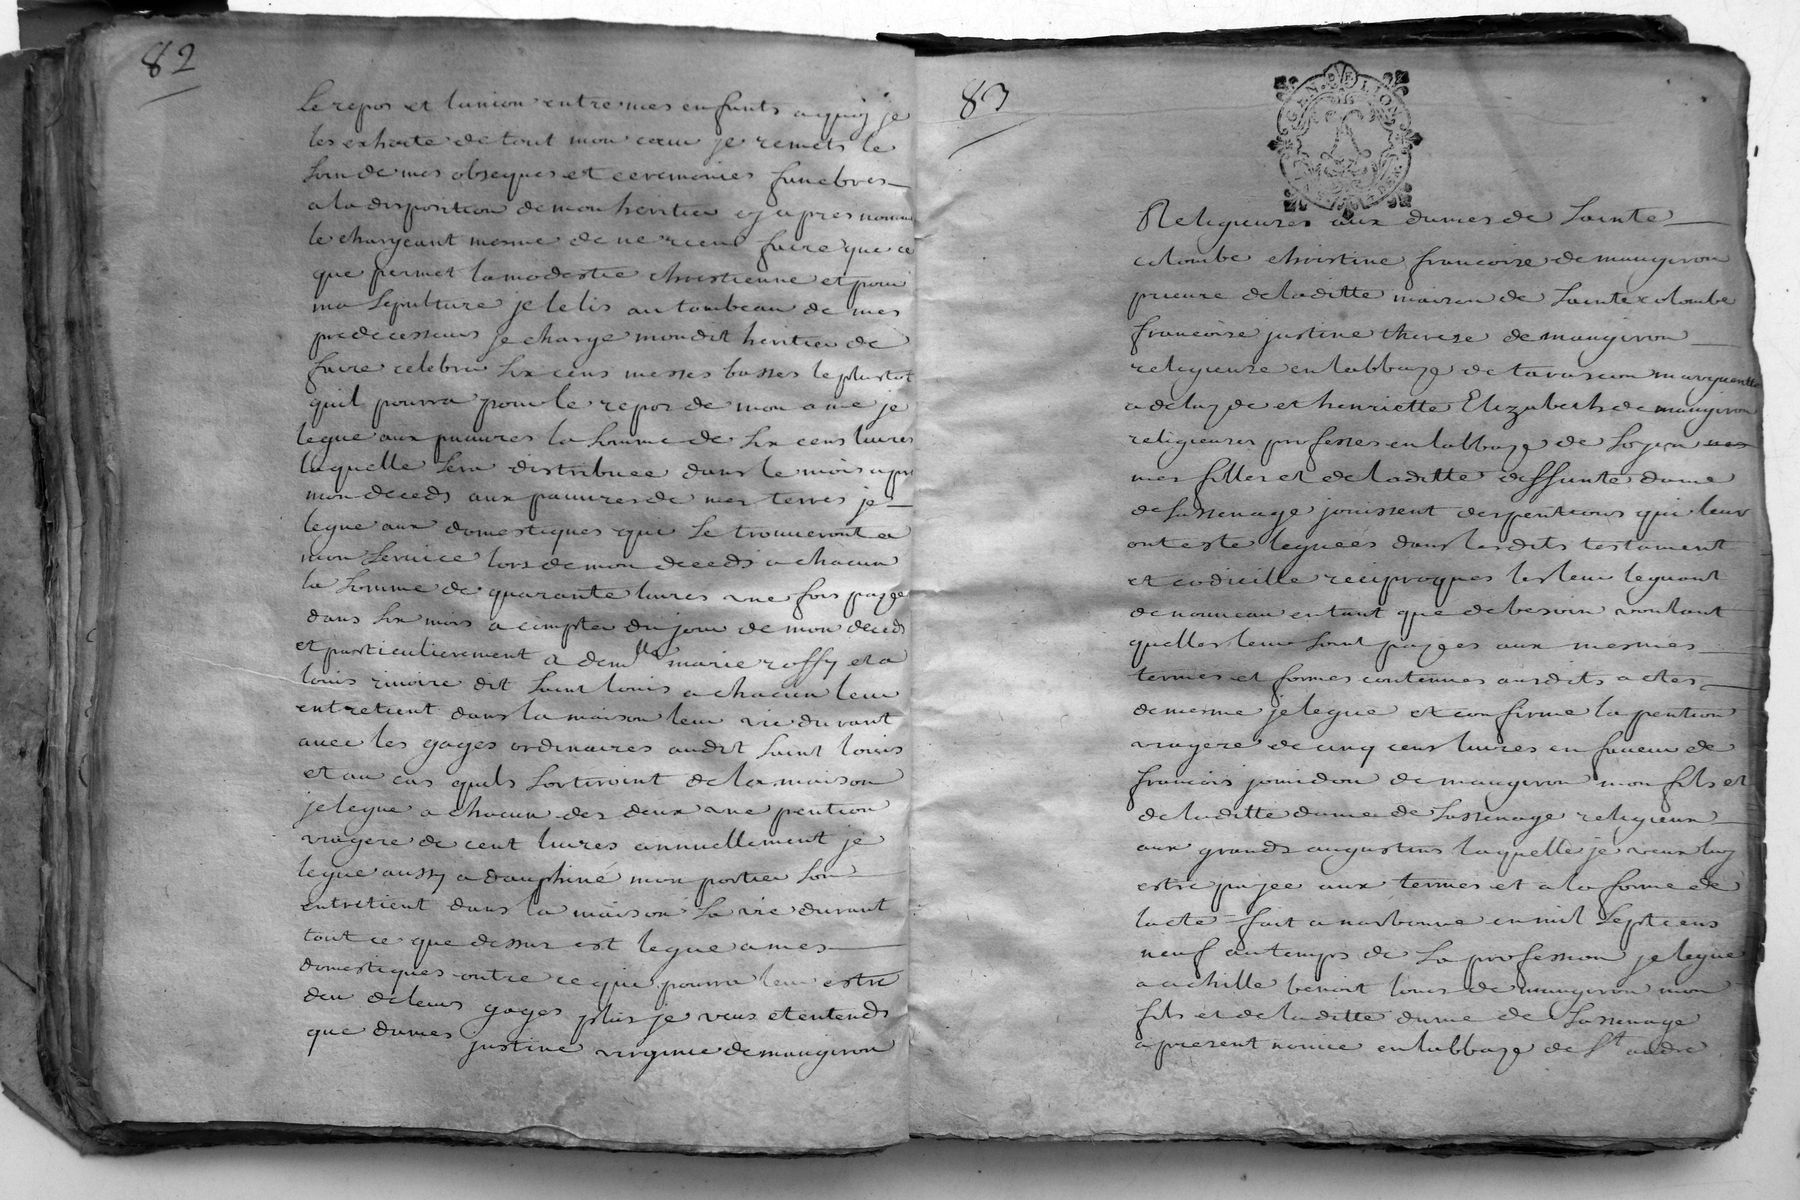 82
le repos et lunion entre mes enfants a quoy je
les exhorte de tout mon cœur je remets le
soin de mes obseques et ceremonies funebres
a la disposition de mon heritier cy apres nommé
le chargeant mesme de ne rien faire que ce
que permet la modestie chrestienne et pour
ma sepulture je lelis au tombeau de mes
predecesseurs je charge mondit heritier de
faire celebrer six cens messes basses le plustot
quil pourra pour le repos de mon ame je
legue aux pauures la somme de six cens liures
laquelle sera distribuee dans le mois apres
mon deceds aux pauures de mes terres je
legue aux domestiques qui se trouueront a
mon seruice lors de mon deceds a chacun
la somme de quarante liures une fois payee
dans six mois a compter du jour de mon deceds
et particulierement a demlle marie roffy et a
louis riuoire dit saint louis a chacun leur
entretient dans la maison leur vie durant
auec les gages ordinaires audit saint louis
et au cas quils sortiroint de la maison
je legue a chacun des deux une pention
viagere de cent liures annuellement je
legue aussy a dauphiné mon portier son
entretient dans la maison sa vie durant
tout ce que dessus est legue a mes
domestiques outre ce qui pourra leur estre
deu de leurs gages plus je veux et entends
que dames justine virginie de maugiron
83
GEN. DE LION
Religieuses aux dames de sainte
colombe christine francoise de maugiron
prieure de laditte maison de sainte colombe
francoise justine therese de maugiron
religieuse en labbaye de tarascon margueritte
adelayde et henriette Elizabeth de maugiron
religieuses professes en labbaye de soyon mes
mes filles et de laditte deffunte dame
de sassenage jouissent des pentions qui leur
ont este leguées dans lesdits testament
et codicille reciproques les leur leguant
de nouueau en tant que de besoin voulant
quelles leur soint payees aux mesmes
termes et formes contenues ausdits actes
de mesme je legue et confirme la pention
viagere de cinq cens liures en faueur de
francois jouidon de maugiron mon fils et
de laditte dame de sassenage religieux
aux grands augustins laquelle je veux luy
estre payee aux termes et a la forme de
lacte fait a narbonne en mil sept cens
neuf au temps de sa profession je legue
a achille benoit louis de maugiron mon
fils et de laditte dame de sassenage
a present nouice en labbaye de St andre